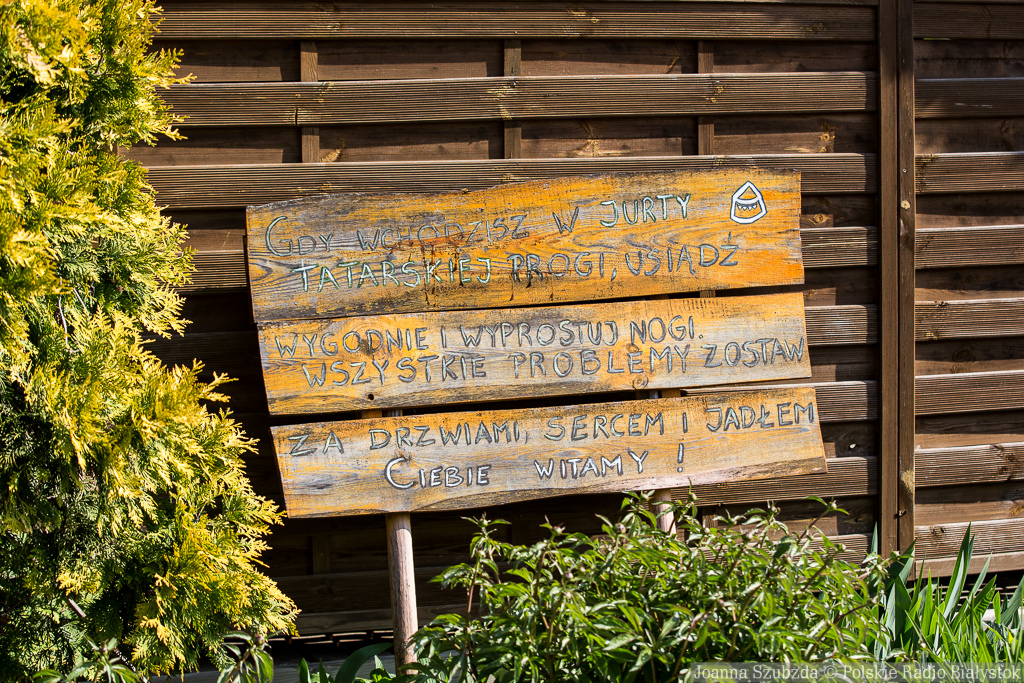 Gdy wchodzisz w jurty
tatarskiej progi, usiądź
wygodnie i wyprostuj nogi.
wszystkie problemy zostaw
za drzwiami, sercem i jadłem
Ciebie witamy!
Joanna Szubzda © Polskie Radio Białystok